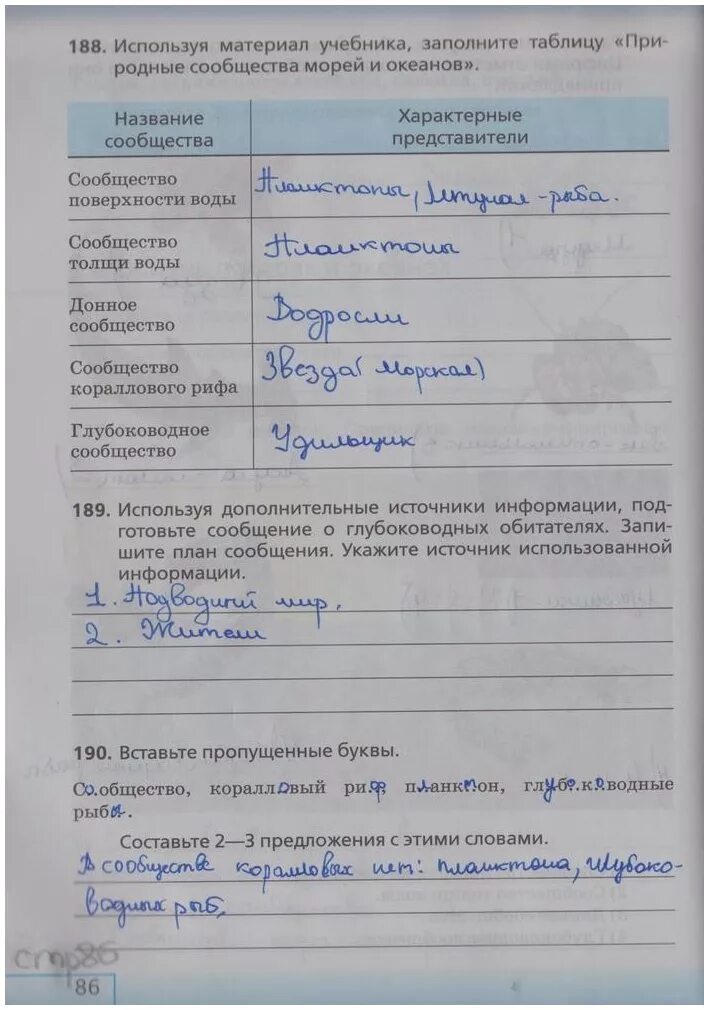 188. Используя материал учебника, заполните таблицу «При-
родные сообщества морей и океанов».
Название
сообщества
Характерные
представители
Сообщество
поверхности воды
Планктоны, Летучая-рыба.
Сообщество
толщи воды
Планктоны
Донное
сообщество
Водросли
Сообщество
кораллового рифа
Звезда( морская)
Глубоководное
сообщество
Удильщик
189. Используя дополнительные источники информации, под-
готовьте сообщение о глубоководных обитателях. Запи-
шите план сообщения. Укажите источник использованной
информации.
1. Подводний мир.
2. Жители
190. Вставьте пропущенные буквы.
Со.общество, коралловый риф, планктон, глубоководные
рыбы.
Составьте 2—3 предложения с этими словами.
В сообществе коралловых нет: планктона, глубоко-
водных рыб.
стр86
86